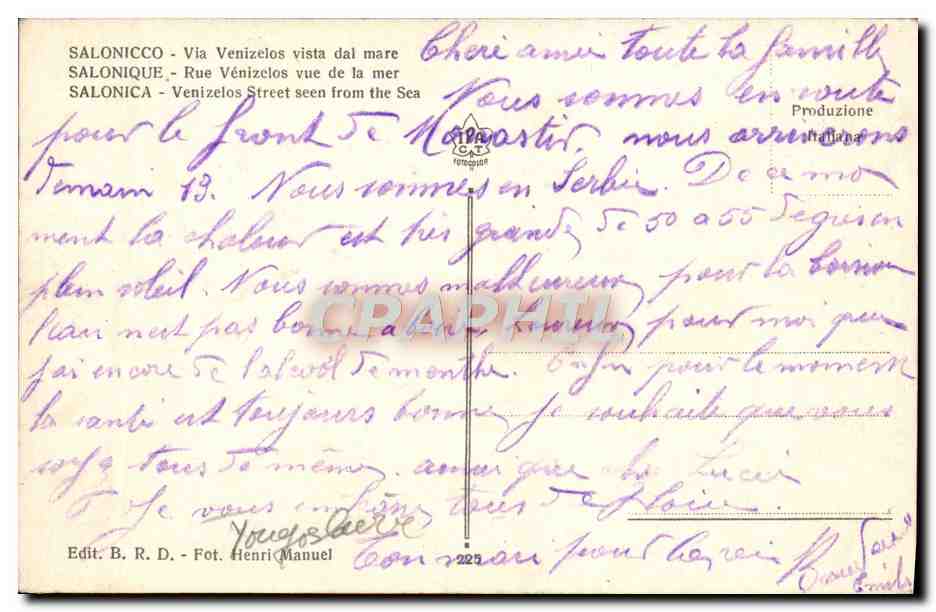 SALONICCO - Via Venizelos vista dal mare
SALONIQUE - Rue Vénizelos vue de la mer
SALONICA - Venizelos Street seen from the Sea
Produzione
Italiana
TPA
CT
FOTOCOLOR
Cheri amie toute la famille
Nous sommes en route
pour le front de Monastir. nous arriverons
demain 13. Nous sommes en Serbie. De ce mo
ment la chaleur est très grande de 50 a 55 degres en
plein soleil. Nous sommes malheureux pour la boisson
l'eau n'est pas bonne a boire heureux pour moi que
j'ai encore de l'alcool de menthe. Enfin pour le moment
la santé est toujours bonne je souhaite que vous
soyez tous de même. ainsi que Lucie
Je vous embrasse tous de
Ton mari pour la vie
Emile
Yougoslavie
CRAPHIL
Edit. B. R. D. - Fot. Henri Manuel
225